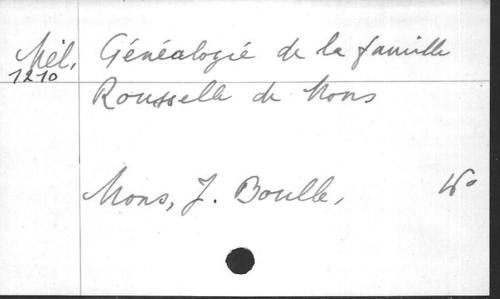 Mél. Généalogie de la famille
1210
Rousselle de Mons
Mons, J. Boulle,